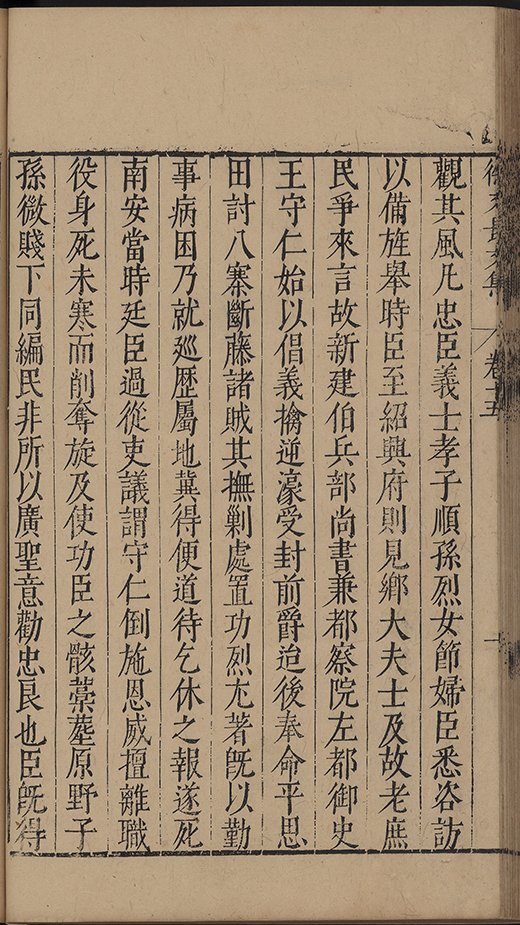 徐文長文集 卷十五
觀其風凡忠臣義士孝子順孫烈女節婦臣悉咨訪
以備旌舉時臣至紹興府則見鄉大夫士及故老庶
民爭來言故新建伯兵部尚書兼都察院左都御史
王守仁始以倡義擒逆濠受封前爵迨後奉命平思
田討八寨斷藤諸賊其撫剿處置功烈尤著旣以勤
事病困乃就廵歷屬地冀得便道待乞休之報遂死
南安當時廷臣過從吏議謂守仁倒施恩威擅離職
役身死未寒而削奪旋及使功臣之骸藁塟原野子
孫微賤下同編民非所以廣聖意勸忠良也臣旣得